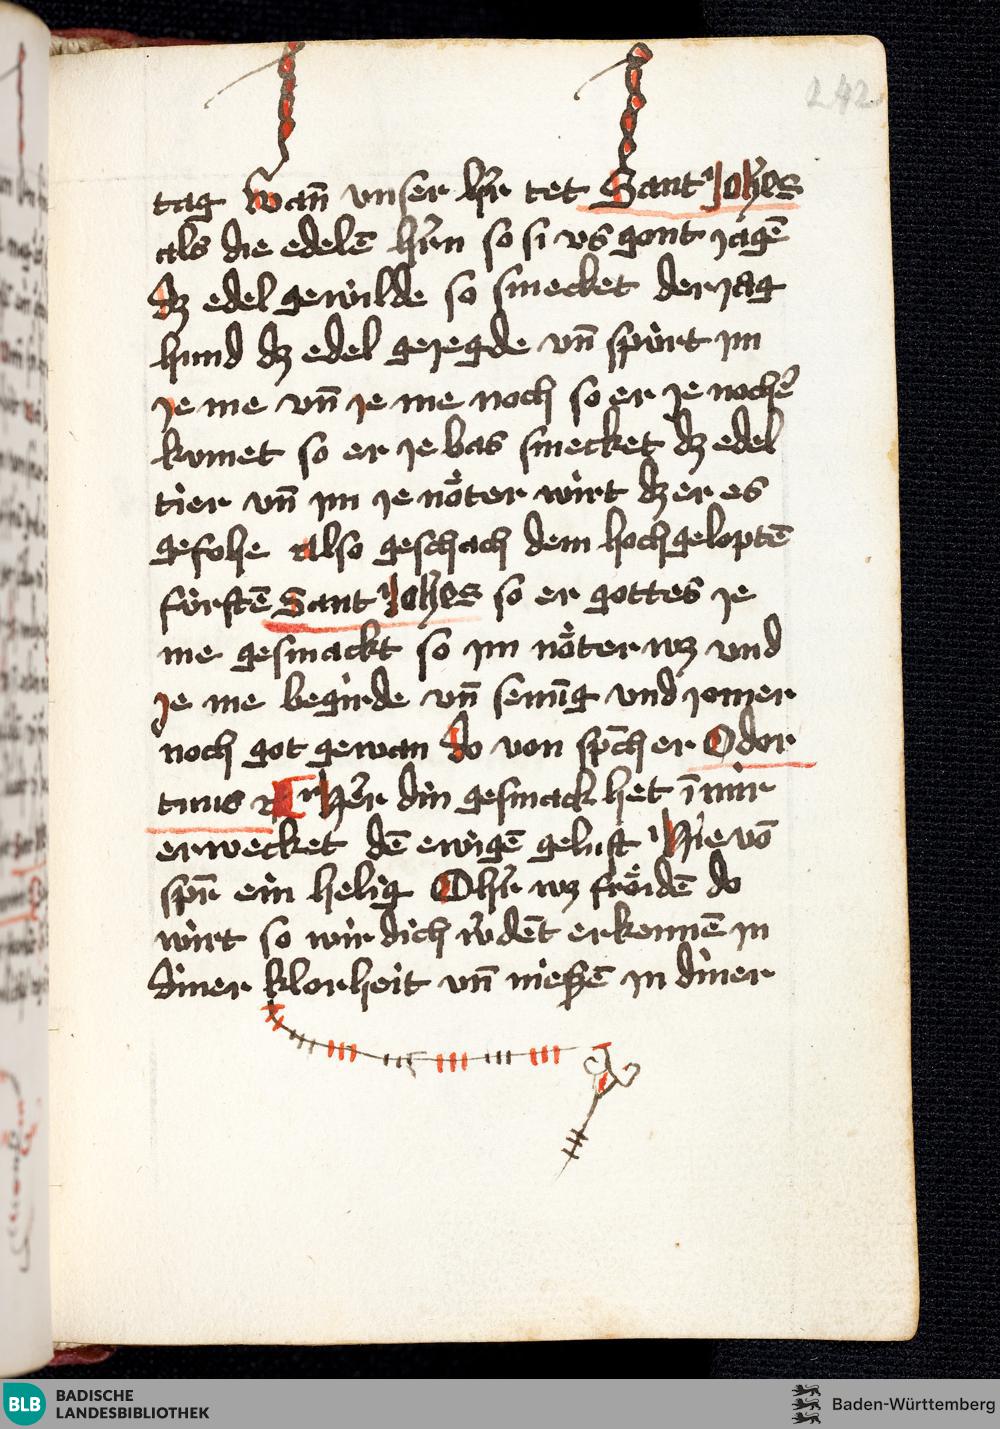 242
tag wan̄ vnser hr̄ tet Sant Joh̄es
als die edelē hr̄n so si vs gont jagē
dz edel gewilde so smecket der jag
hund dz edel gejegde vn̄ spùrt im
je me vn̄ je me noch so er je nochē
kumet so er je bas smecket dz edel
tier vn̄ im je nöter wirt dz er es
gefohe also geschach dem hochgeloptē
fùrstē Sant Joh̄es so er gottes je
me gesmackt so im nöter wz vnd
je me begirde vn̄ senūg vnd jomer
noch got gewan do von sp̄ch er Odor
tuus Her din gesmack het ī mir
erwecket dē ewigē gelust Hie vō
spr̄ ein helig O hr̄ wz fröidē do
wirt so wir dich w̄dēt erkennē in
diner klorheit vn̄ niessē in diner
BLB
BADISCHE
LANDESBIBLIOTHEK
Baden-Württemberg